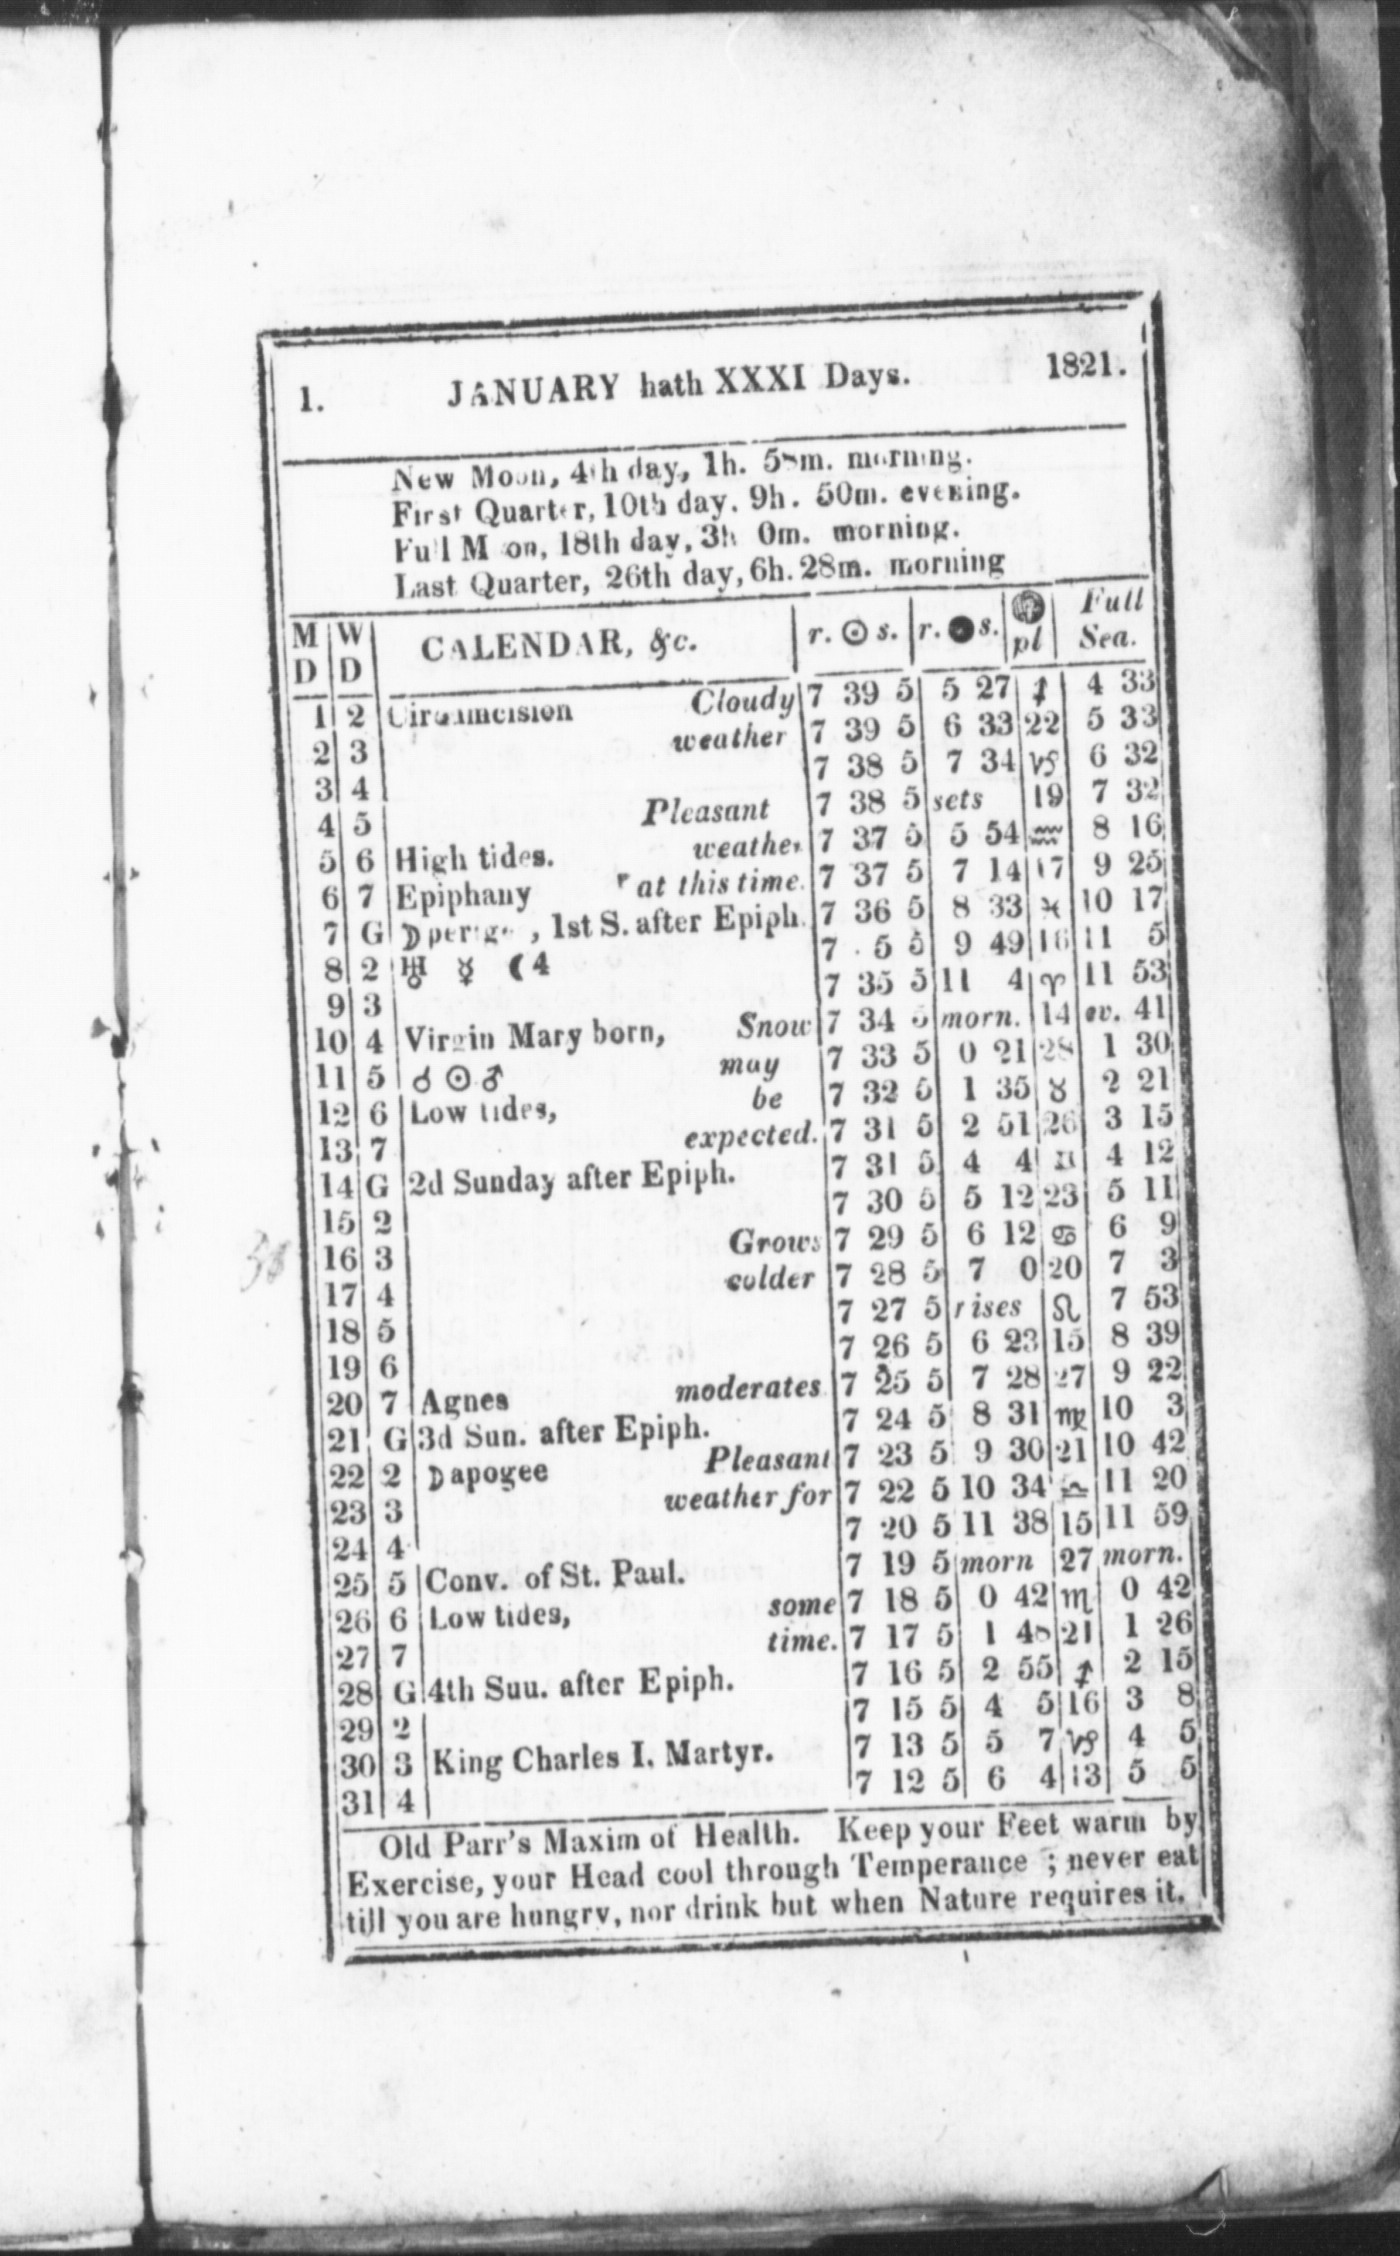 1. JANUARY hath XXXI Days. 1821.
New Moon, 4th day, 1h. 58m. morning.
First Quarter, 10th day. 9h. 50m. evening.
Full Moon, 18th day, 3h 0m. morning.
Last Quarter, 26th day, 6h. 28m. morning
M D W D CALENDAR, &c. r. ☉ s. r. ● s. pl Full Sea.
1 2 Circumcision Cloudy 7 39 5 5 27 ♐ 4 33
2 3 weather 7 39 5 6 33 22 5 33
3 4 7 38 5 7 34 ♑ 6 32
4 5 Pleasant 7 38 5 sets 19 7 32
5 6 High tides. weather 7 37 5 5 54 ♒ 8 16
6 7 Epiphany at this time. 7 37 5 7 14 17 9 25
7 G ☽ perige , 1st S. after Epiph. 7 36 5 8 33 ♓ 10 17
8 2 ♅ ☿ ☾ 4 7 5 5 9 49 16 11 5
9 3 7 35 5 11 4 ♈ 11 53
10 4 Virgin Mary born, Snow 7 34 5 morn. 14 ev. 41
11 5 ☌ ☉ ♂ may 7 33 5 0 21 28 1 30
12 6 Low tides, be 7 32 5 1 35 ♉ 2 21
13 7 expected. 7 31 5 2 51 26 3 15
14 G 2d Sunday after Epiph. 7 31 5 4 4 ♊ 4 12
15 2 7 30 5 5 12 23 5 11
16 3 Grows 7 29 5 6 12 ♋ 6 9
17 4 colder 7 28 5 7 0 20 7 3
18 5 7 27 5 rises ♌ 7 53
19 6 7 26 5 6 23 15 8 39
20 7 Agnes moderates 7 25 5 7 28 27 9 22
21 G 3d Sun. after Epiph. 7 24 5 8 31 ♍ 10 3
22 2 ☽ apogee Pleasant 7 23 5 9 30 21 10 42
23 3 weather for 7 22 5 10 34 ♎ 11 20
24 4 7 20 5 11 38 15 11 59
25 5 Conv. of St. Paul. 7 19 5 morn 27 morn.
26 6 Low tides, some 7 18 5 0 42 ♏ 0 42
27 7 time. 7 17 5 1 48 21 1 26
28 G 4th Suu. after Epiph. 7 16 5 2 55 ♐ 2 15
29 2 7 15 5 4 5 16 3 8
30 3 King Charles I. Martyr. 7 13 5 5 7 ♑ 4 5
31 4 7 12 5 6 4 13 5 5
Old Parr's Maxim of Health. Keep your Feet warm by
Exercise, your Head cool through Temperance ; never eat
till you are hungry, nor drink but when Nature requires it.